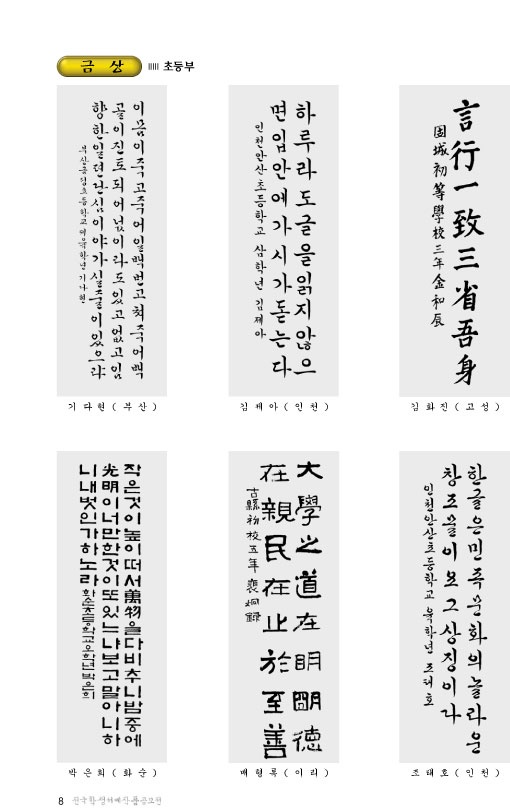 금 상
초등부
이몸이죽고죽어일백번고쳐죽어백
골이진토되어넋이라도있고없고임
향한일편단심이야가실줄이있으랴
기다현
기다현(부산)
하루라도글을읽지않으
면입안에가시가돋는다
인천안산초등학교 삼학년 김제아
김제아(인천)
言行一致三省吾身
固城初等學校三年金和辰
김화진(고성)
작은것이높이떠서萬物을다비추니밤중에
光明이너만한것이또있느냐보고말아니하
니내벗인가하노라
박은희
박은희(화순)
大學之道在明明德
在親民在止於至善
古縣初校五年裵炯錄
배형록(이리)
한글은민족문화의놀라운
창조물이오그상징이라
인천안산초등학교 육학년 조태호
조태호(인천)
8 전국학생서예작품공모전